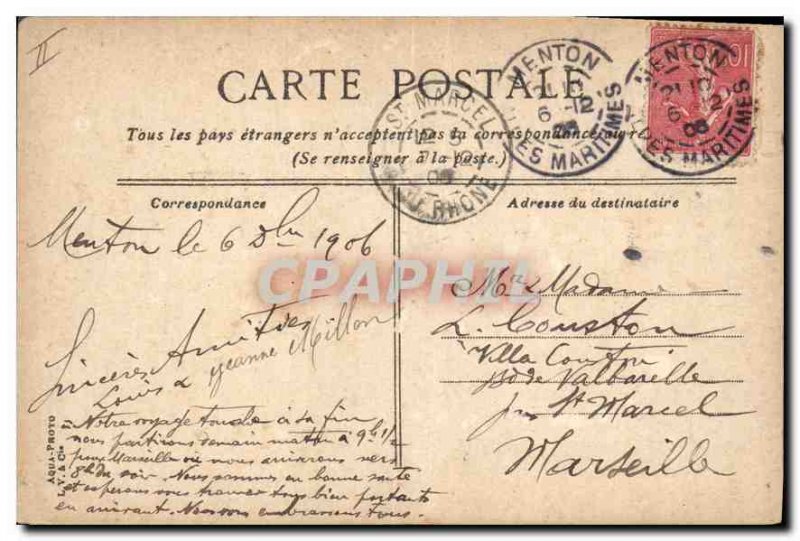 II
CARTE POSTALE
Tous les pays étrangers n'acceptent pas la correspondance au re
(Se renseigner à la poste.)
MENTON
6 -12
ALPES MARITIMES
MENTON
6 12
ALPES MARITIMES
10c
ST MARCEL
B. DU RHONE
Correspondance
Adresse du destinataire
Menton le 6 Dbre 1906
Sincères Amitiés
Louis & Jeanne Millon
Notre voyage touche à sa fin
nous partirons demain matin à 9h 1/2
pour Marseille où nous arriverons vers
8h du soir. Nous sommes en bonne santé
et espérons vous trouver tous bien portants
en arrivant. Nous vous embrassons tous.
Mr Madame
L. Couston
Villa Couston
de Valbarelle
par St Marcel
Marseille
CPAPHIL
AQUA-PHOTO
L. V. & Cie